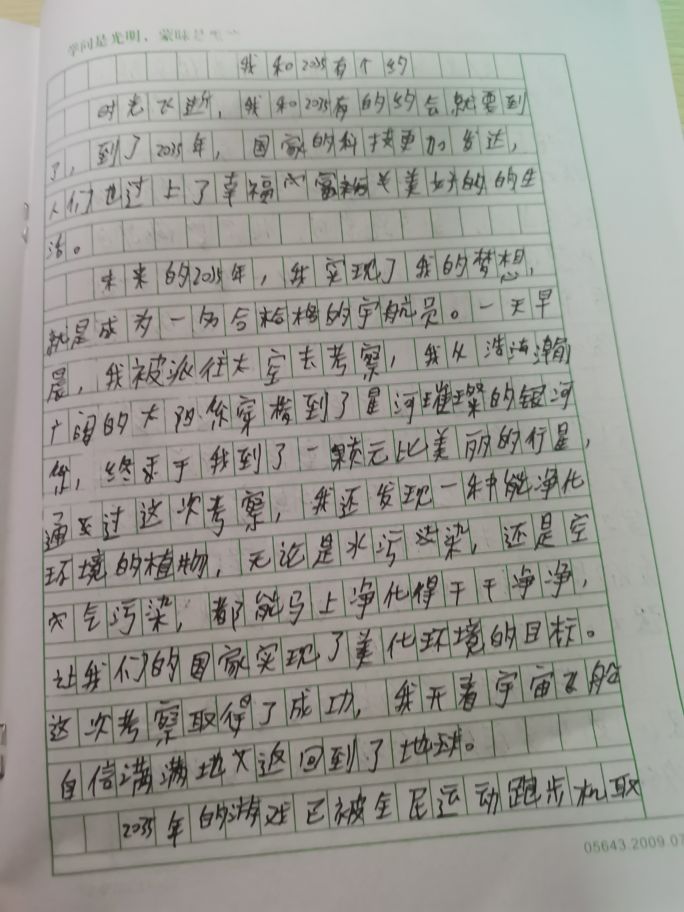 学问是光明，蒙昧是
我和2035有个约
时光飞逝，我和2035有的约会就要到
了，到了2035年，国家的科技更加发达，
人们也过上了幸福富裕美好的的生
活。
未来的2035年，我实现了我的梦想，
就是成为一名合格格的宇航员。一天早
晨，我被派往太空去考察，我从浩瀚
广阔的太阳系穿梭到了星河璀璨的银河
系，终于我到了一颗无比美丽的行星，
通过这次考察，我还发现一种能净化
环境的植物，无论是水污染，还是空
气污染，都能马上净化得干干净净，
让我们的国家实现了美化环境的目标。
这次考察取得了成功，我开着宇宙飞船
自信满满地返回到了地球。
2035年的游戏已被全民运动跑步机取
05643.2009.07